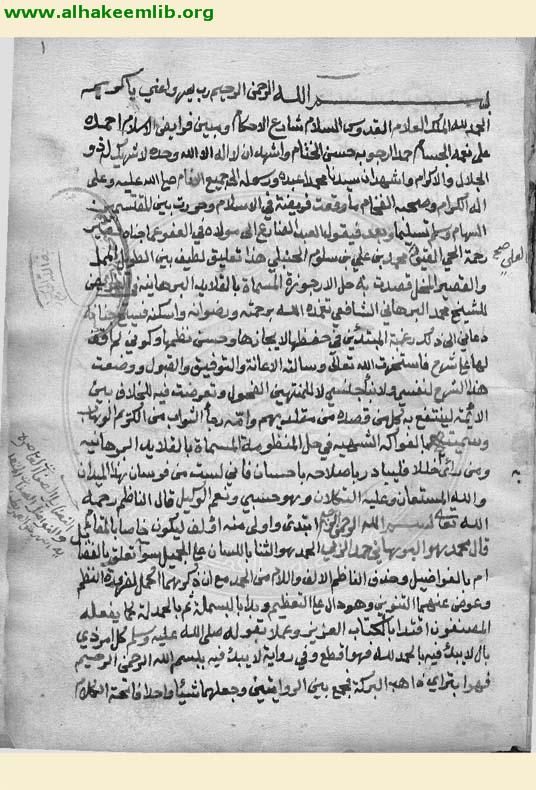 www.alhakeemlib.org
١
بسم الله الرحمن الرحيم رب يسر واعني يا كريم
الحمد لله الملك العلام القدوس السلام شارع الاحكام ومبين فرايض الاسلام احمده
على نعمه الجسام حمدا ارجو به حسن الختام واشهد ان لا اله الا الله وحده لا شريك له ذو
الجلال والاكرام واشهد ان سيدنا محمدا عبده ورسوله الى جميع الانام صلى الله عليه وعلى
اله الكرام وصحبه الفخام ما وقعت فريضة في الاسلام وحررت بين المقتسمين
السهام وسلم تسليما وبعد فيقول العبد الضارع الى مولاه في العفو عما جناه
رحمة الحي القيوم محمد بن علي بن سلوم الحنبلي هذا تعليق لطيف بين الطويل الممل
والقصير المخل قصدت به حل الارجوزة المسماة بالقلايد البرهانية في الفرايض
للشيخ محمد البرهاني الشافعي تغمده الله برحمته ورضوانه واسكنه فسيح جنانه
دعاني الى ذلك رغبة المبتدئين في حفظها لايجازها وحسن نظمها وكوني لم اقف
لها على شرح فاستخرت الله تعالى وسالته الاعانة والتوفيق والقبول ووضعت
هذا الشرح لنفسي ولابناء جنسي لا للمنتهين الفحول وتعرضت فيه للخلاف بين
الائمة لينتفع به كل من قصده من مقلديهم وامته رجاء الثواب من الكريم الوهاب
وسميته الفواكه الشهية في حل المنظومة المسماة بالقلايد البرهانية
ومن راى خللا فليبادر باصلاحه باحسان فاني لست من فرسان هذا الميدان
والله المستعان وعليه التكلان وهو حسبي ونعم الوكيل قال الناظم رحمه
الله تعالى بسم الله الرحمن الرحيم ابتدئ واولى منه اؤلف ليكون خاصا بالمقام
قال محمد هو البرهاني حمدا لربي الحمد هو الثنا باللسان على الجميل سوا تعلق بالفضا
ام بالفواضل وحذف الناظم الالف واللام من الحمد مع ان ذكرهما اكمل لضرورة النظم
وعوض عنهما التنوين وهو دال على التعظيم وبدا بالبسملة ثم بالحمد لة كما يفعله
المصنفون اقتدا بالكتاب العزيز وعملا بقوله صلى الله عليه وسلم كل امر ذي
بال لا يبدء فيه بالحمد لله فهو اقطع وفي رواية لا يبدء فيه ببسم الله الرحمن الرحيم
فهو ابتر اي ذاهب البركة فجمع بين الروايتين وجعلهما شيئا واحدا فاتحة الكلام